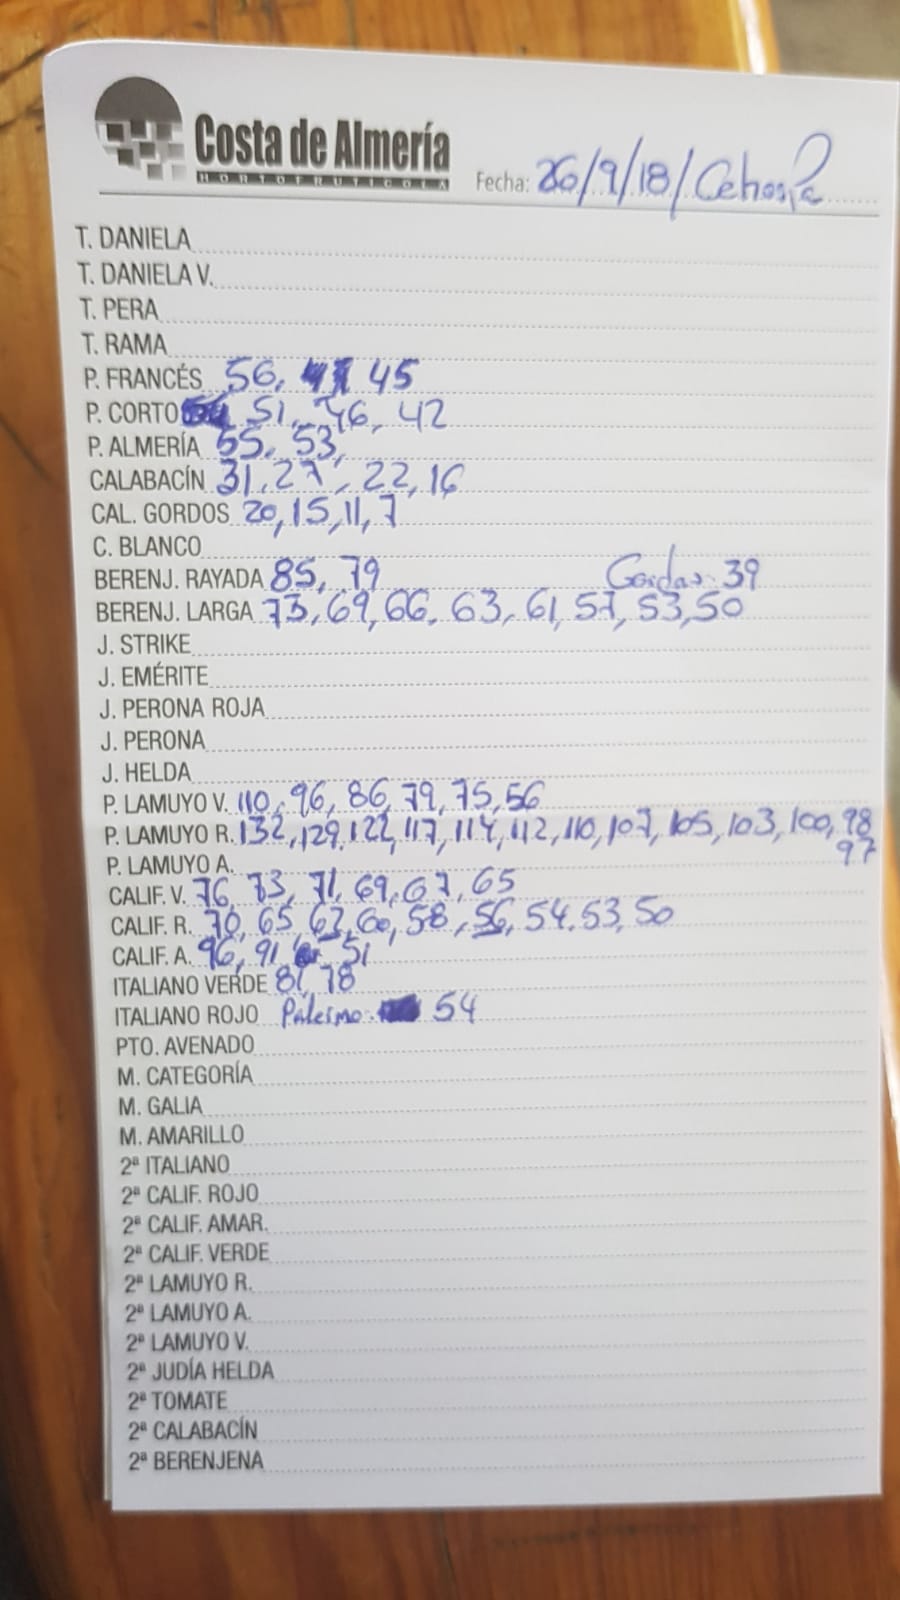 Costa de Almería
HORTOFRUTICOLA
Fecha: 26/9/18/
T. DANELA
T. DANIELA V.
T. PERA
T. RAMA
P. FRANCÉS 56, 45
P. CORTO 51, 46, 42
P. ALMERÍA 55, 53,
CALABACÍN 31, 27, 22, 16
CAL. GORDOS 20, 15, 11, 7
C. BLANCO
BERENJ. RAYADA 85, 79 Gordas 39
BERENJ. LARGA 73, 69, 66, 63, 61, 57, 53, 50
J. STRIKE
J. EMÉRITE
J. PERONA ROJA
J. PERONA
J. HELDA
P. LAMUYO V. 110, 96, 86, 79, 75, 56
P. LAMUYO R. 132, 129, 122, 117, 114, 112, 110, 107, 105, 103, 100, 98
97
P. LAMUYO A.
CALIF. V. 76, 73, 71, 69, 67, 65
CALIF. R. 70, 65, 63, 60, 58, 56, 54, 53, 50
CALIF. A. 96, 91 51
ITALIANO VERDE 81, 78
ITALIANO ROJO Palermo 54
PTO. AVENADO
M. CATEGORÍA
M. GALIA
M. AMARILLO
2ª ITALIANO
2ª CALIF. ROJO
2ª CALIF. AMAR.
2ª CALIF. VERDE
2ª LAMUYO R.
2ª LAMUYO A.
2ª LAMUYO V.
2ª JUDÍA HELDA
2ª TOMATE
2ª CALABACÍN
2ª BERENJENA